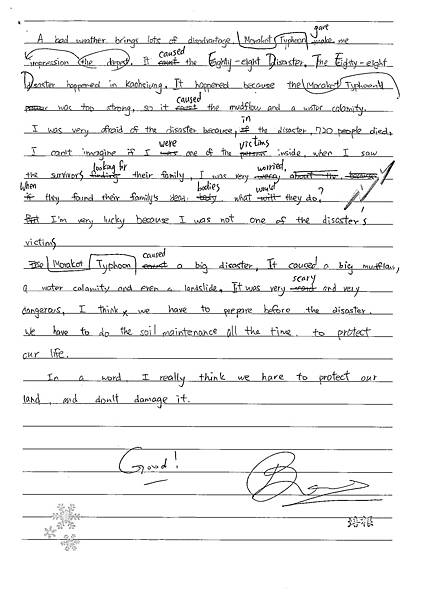 A bad weather brings lots of disadvantage. Morakot Typhoon gave make me
impression the deepest. It caused the Eighty-eight Disaster. The Eighty-eight
Disaster happened in Kaohsiung. It happened because the Morakot Typhoon
was too strong, so it caused the mudflow and a water calamity.
I was very afraid of the disaster because, in the disaster, 720 people died.
I can't imagine if I were one of the victims inside, when I saw
the survivors looking for finding their family, I was very worried. about the because
When if they found their family's dead bodies body, what would will they do?
But I'm very lucky because I was not one of the disaster's
victims
The Morakot Typhoon caused a big disaster, It caused a big mudflow,
a water calamity and even a landslide. It was very scary and very
dangerous, I think we have to prepare before the disaster.
We have to do the soil maintenance all the time. to protect
our life.
In a word, I really think we have to protect our
land, and don't damage it.
Good!